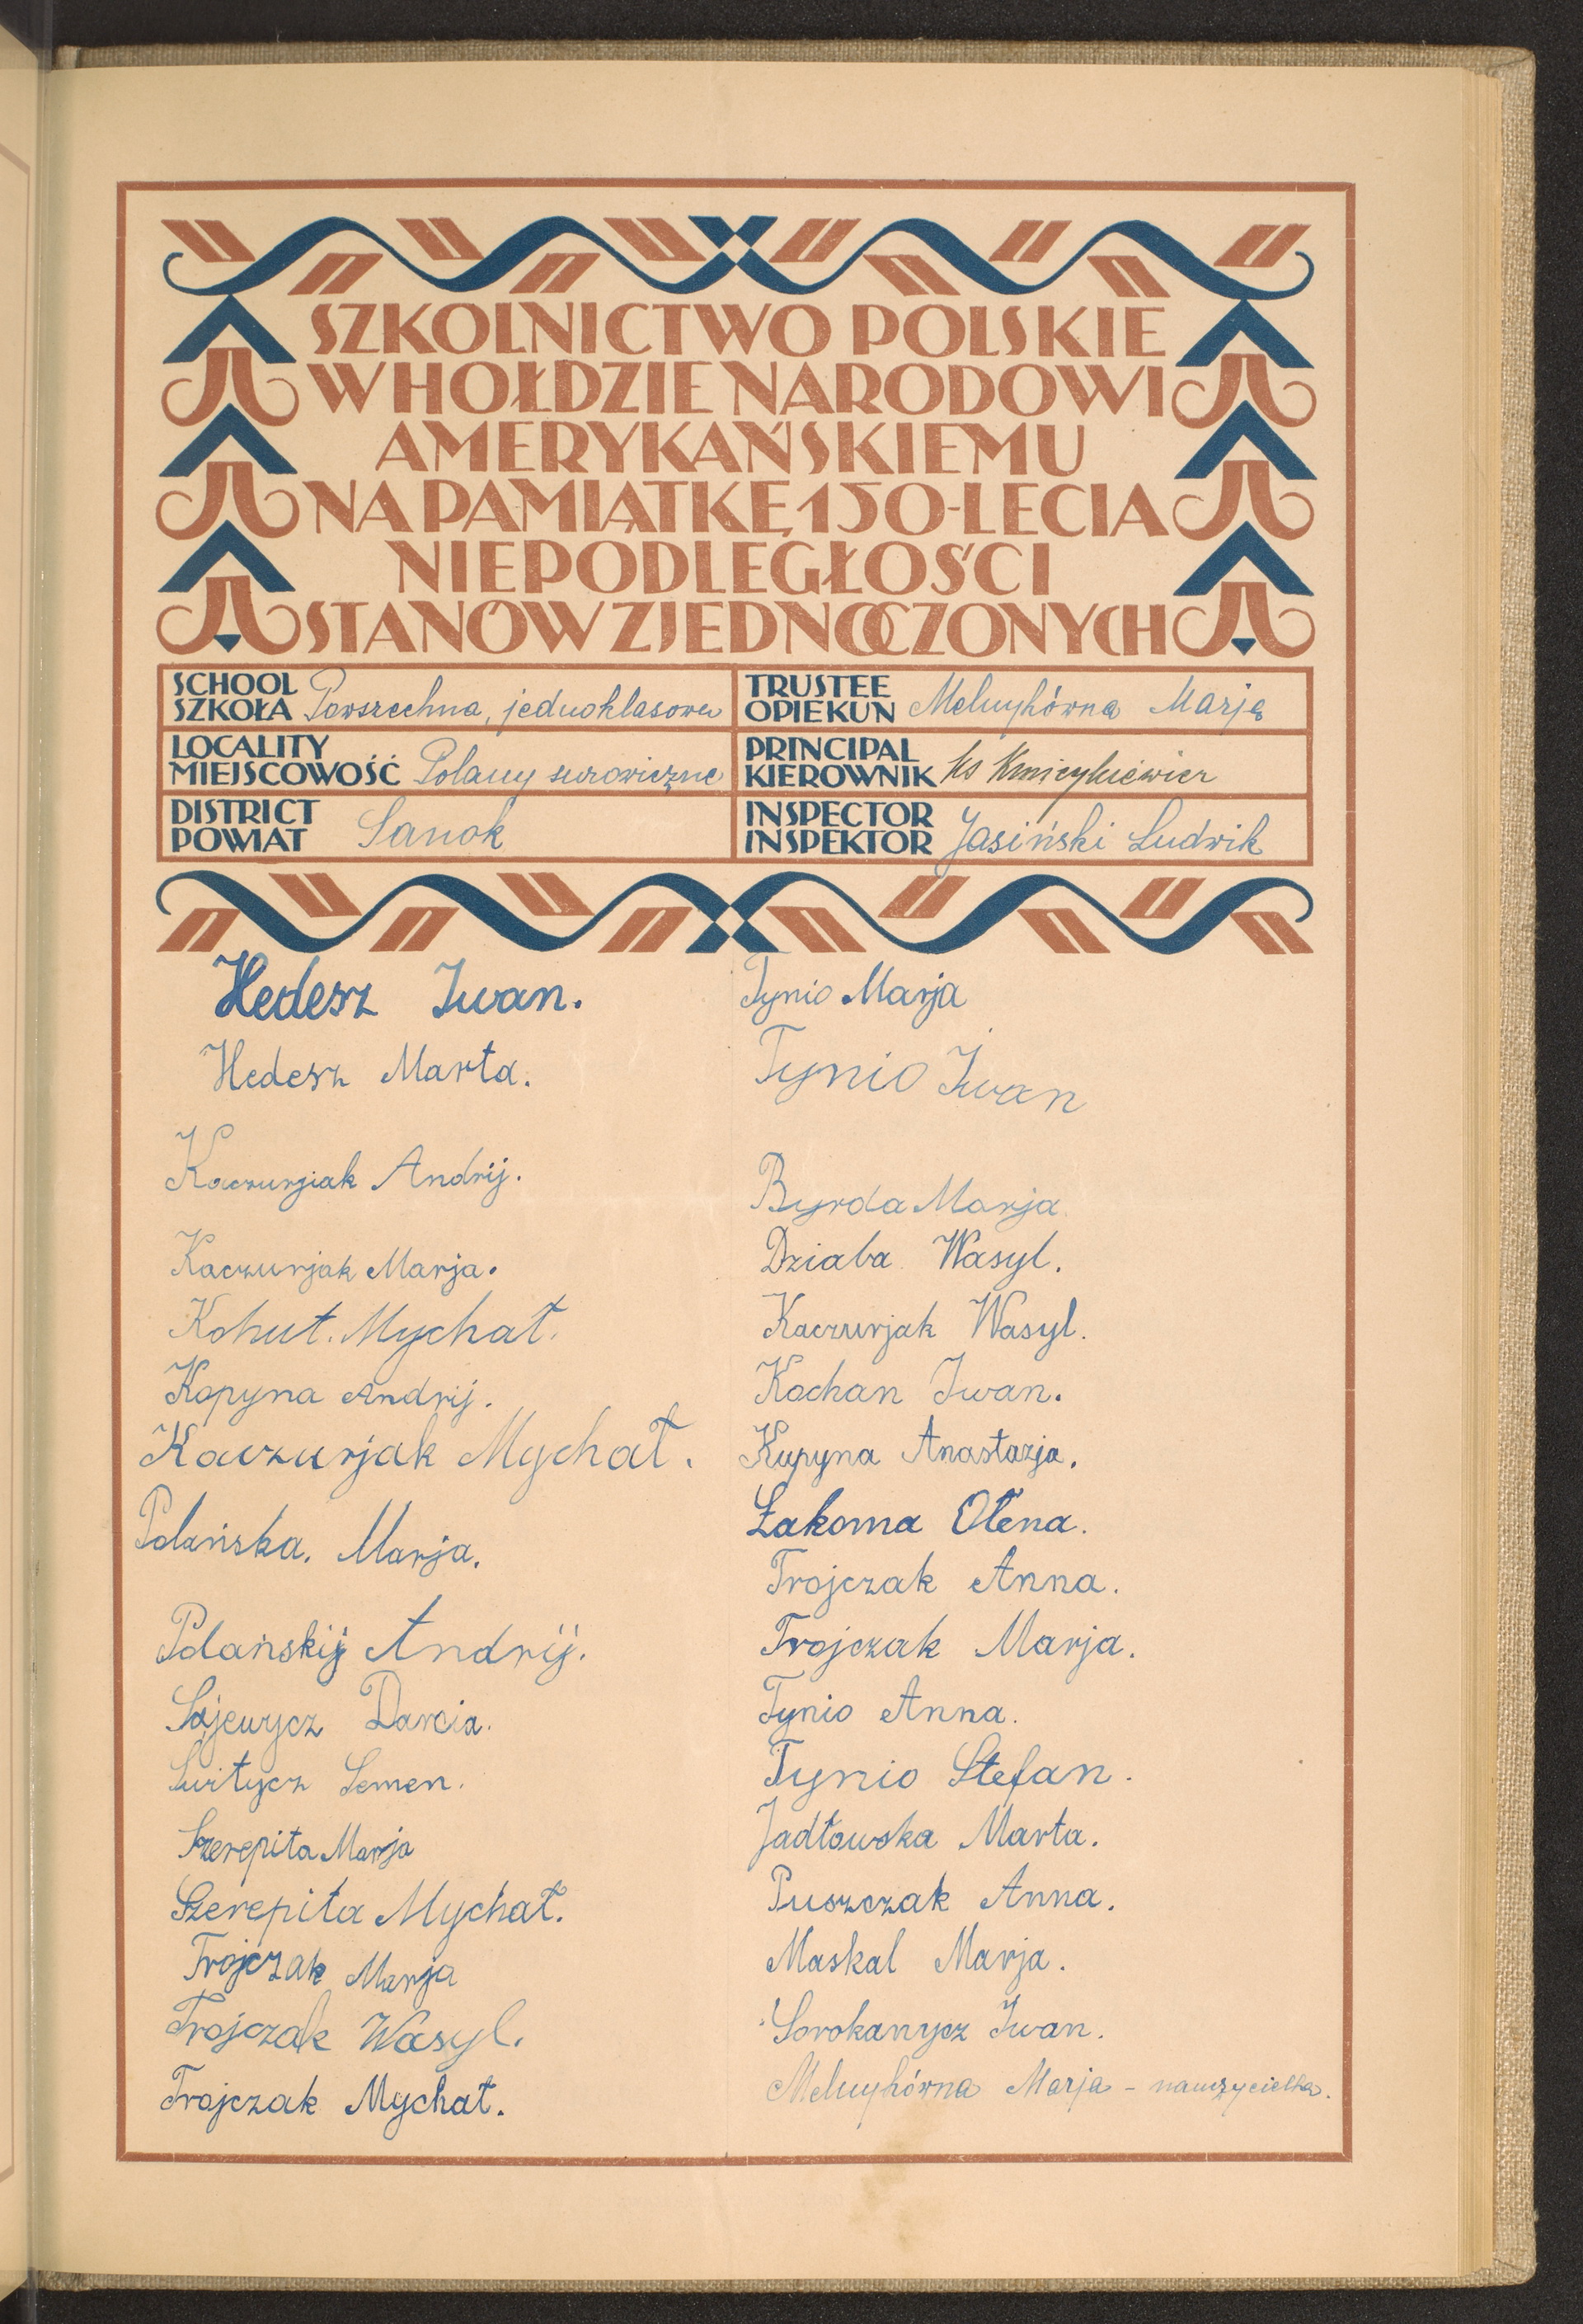 SZKOLNICTWO POLSKIE
W HOŁDZIE NARODOWI
AMERYKAŃSKIEMU
NA PAMIĄTKĘ 150-LECIA
NIEPODLEGŁOŚCI
STANÓW ZJEDNOCZONYCH
SCHOOL
SZKOŁA Powszechna, jednoklasowa
TRUSTEE
OPIEKUN Melnykówna Marja
LOCALITY
MIEJSCOWOŚĆ Polany surowiczne
PRINCIPAL
KIEROWNIK ks Kmicykiewicz
DISTRICT
POWIAT Sanok
INSPECTOR
INSPEKTOR Jasiński Ludwik
Hedesz Iwan.
Hedesz Marta.
Kaczurgiak Andrij.
Kaczurjak Marja.
Kohut. Mychał.
Kopyna Andrij.
Kaczurjak Mychał.
Polańska. Marja.
Polańskij Andrij.
Sajewycz Darcia.
Switycz Semen.
Szerepita Marja
Szerepita Mychał.
Trojczak Marja
Trojczak Wasyl.
Trojczak Mychał.
Tynio Marja
Tynio Iwan
Byrda Marja
Dziaba Wasyl.
Kaczurjak Wasyl.
Kochan Iwan.
Kupyna Anastazja.
Łakoma Ołena.
Trojczak Anna.
Trojczak Marja.
Tynio Anna.
Tynio Stefan.
Jadłowska Marta.
Puszczak Anna.
Maskal Marja.
Sorokanycz Iwan.
Melnykówna Marja – nauczycielka.